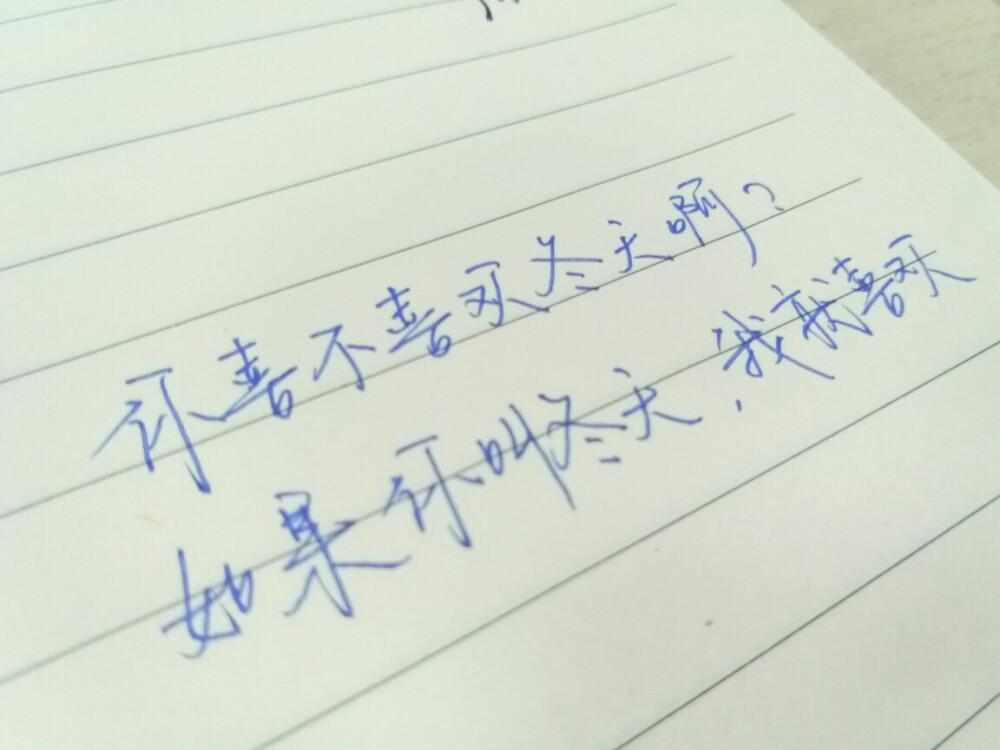 你喜不喜欢冬天啊?
如果你叫冬天,我就喜欢